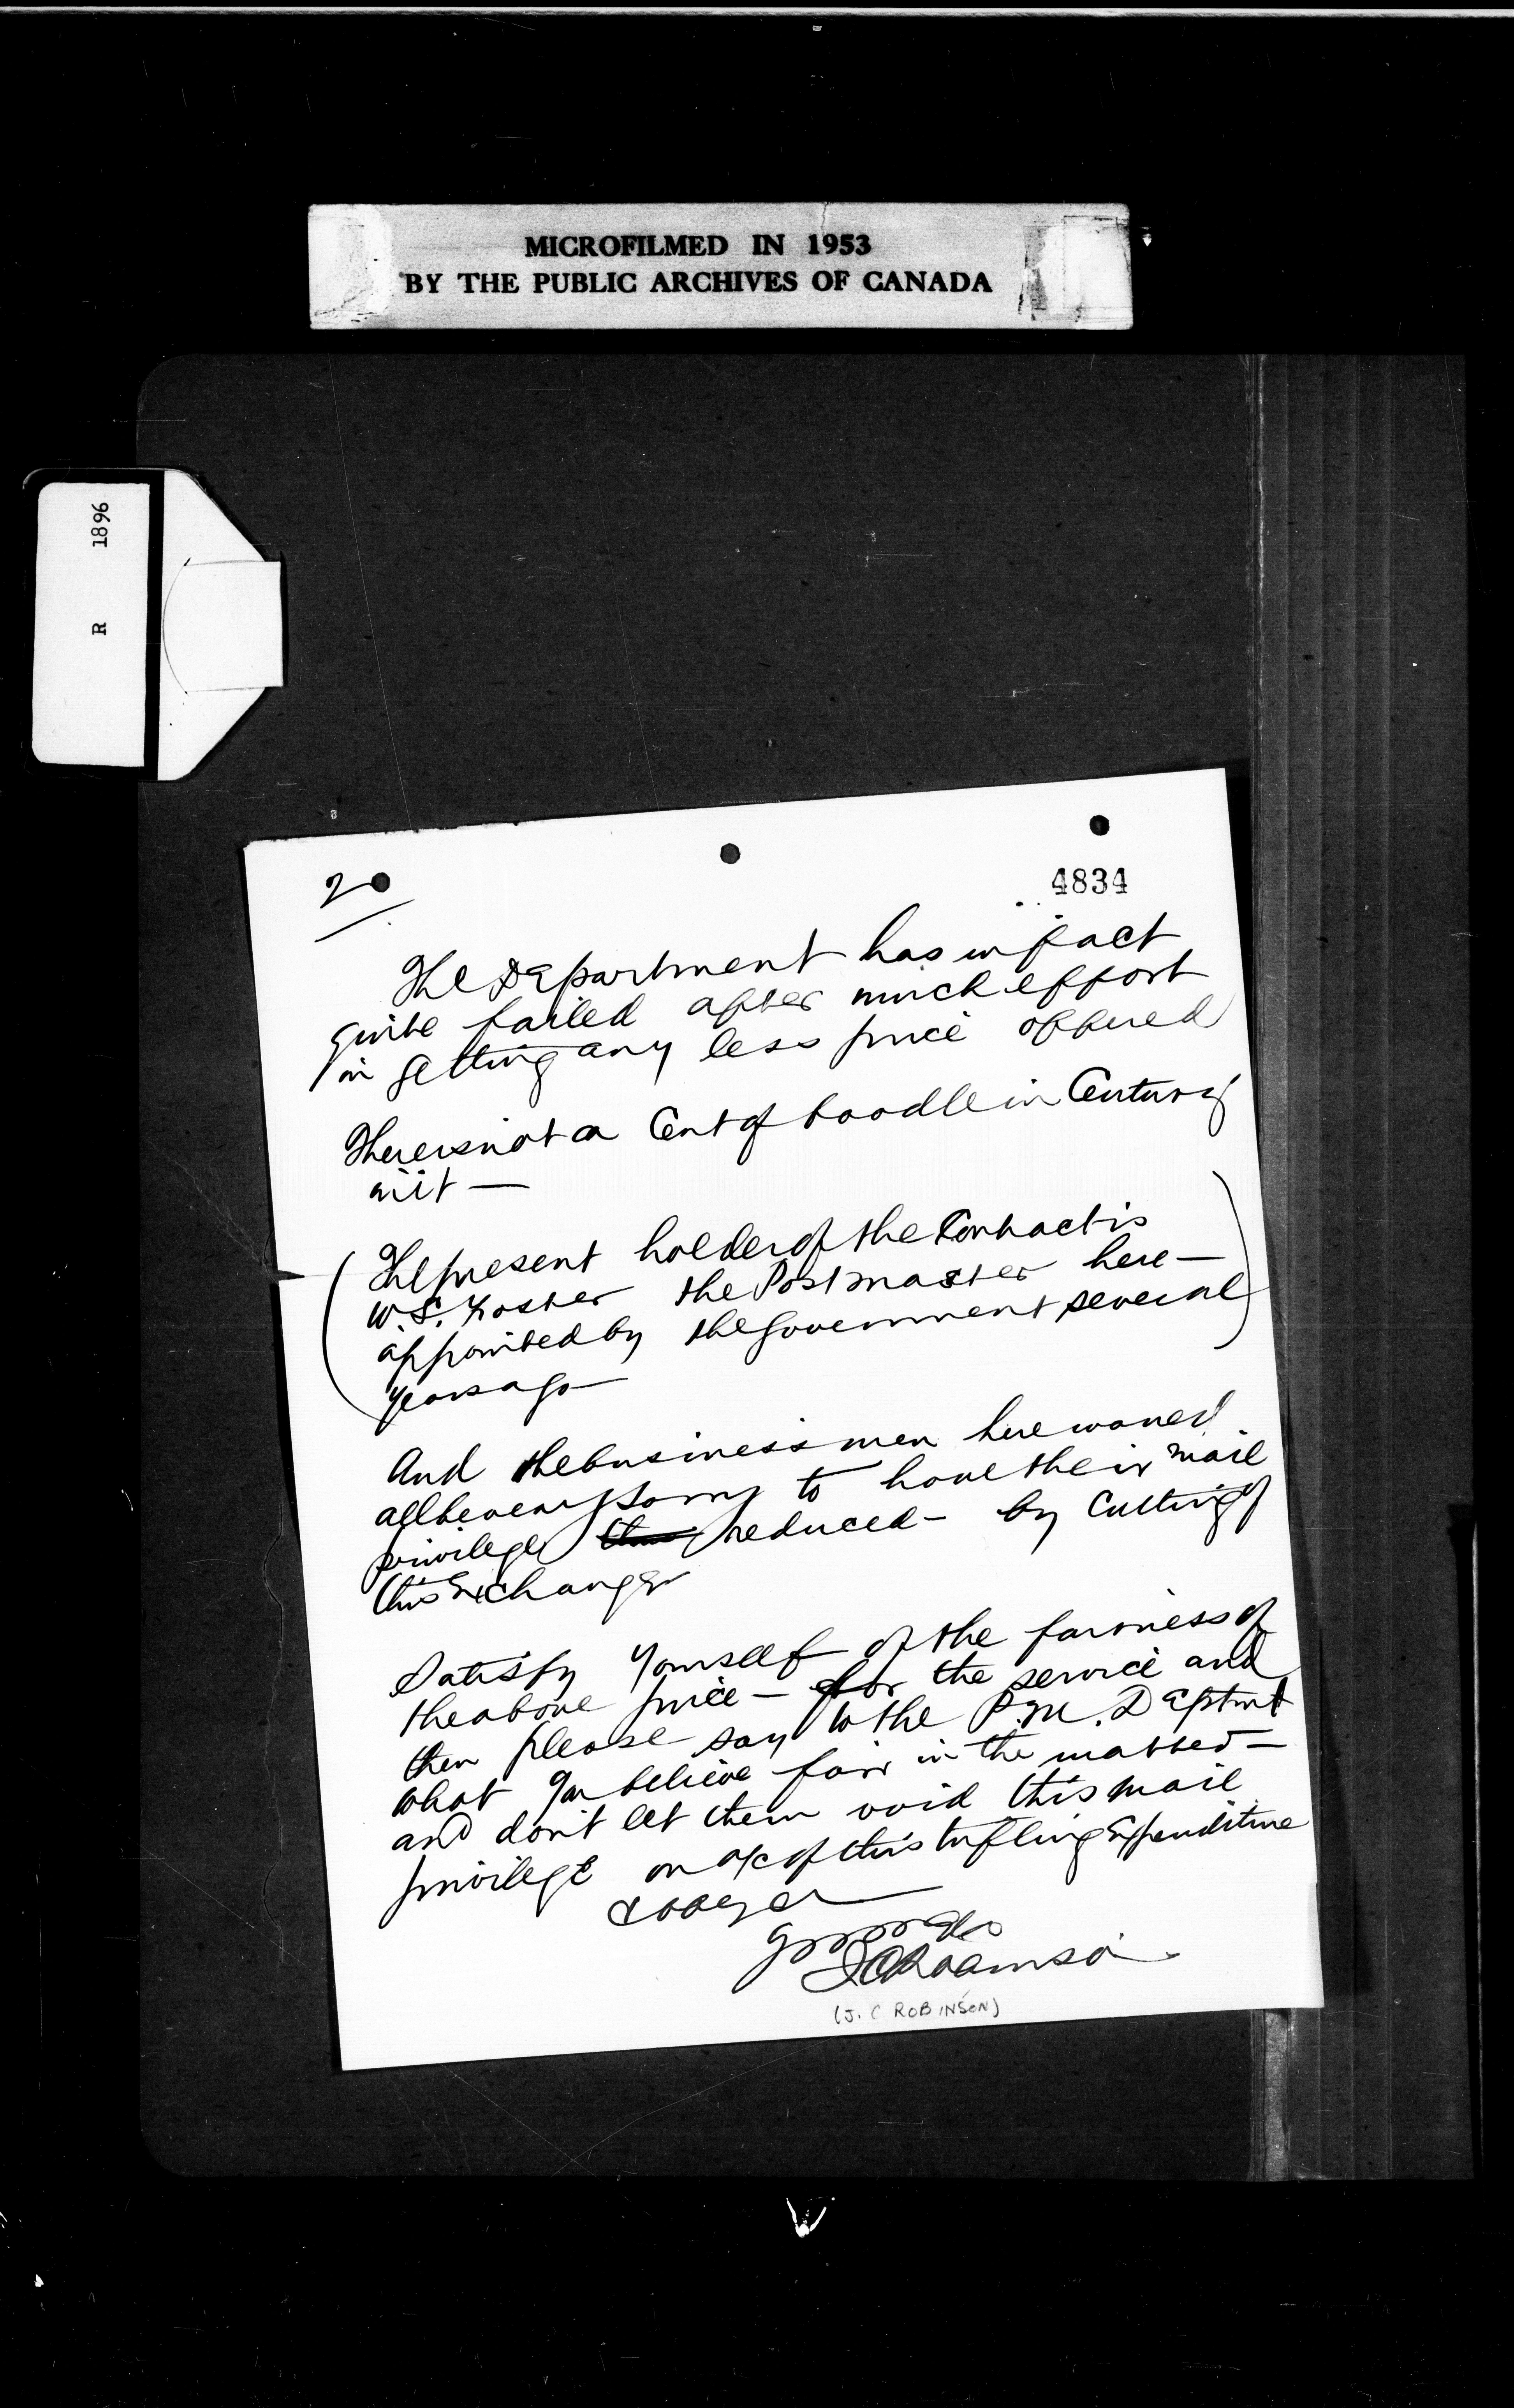 MICROFILMED IN 1953
BY THE PUBLIC ARCHIVES OF CANADA
R 1896
2
4834
The Department has in fact
quite failed after much effort
in getting any less price offered
There is not a Cent of boodle in Century
in it —
(The present holder of the Contract is
W. S. Foster the Postmaster here —
appointed by the government several
years ago)
And the business men here
all be very sorry to have their mail
privilege reduced - by Cutting of
this Exchange
Satisfy yourself of the fairness of
the above price — for the service and
then please say to the P. M. Deptmt
what you believe fair in the matter —
and don't let them void this mail
privilege on a/c of this trifling Expenditure
J C Robinson
(J. C ROBINSON)